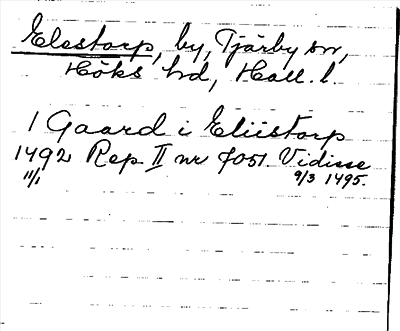 Elestorp, by, Tjärby sn,
Höks hd, Hall. l.
1 Gaard i Eliistorp
1492 Rep. II nr 7051. Vidisse
11/1 9/3 1495.